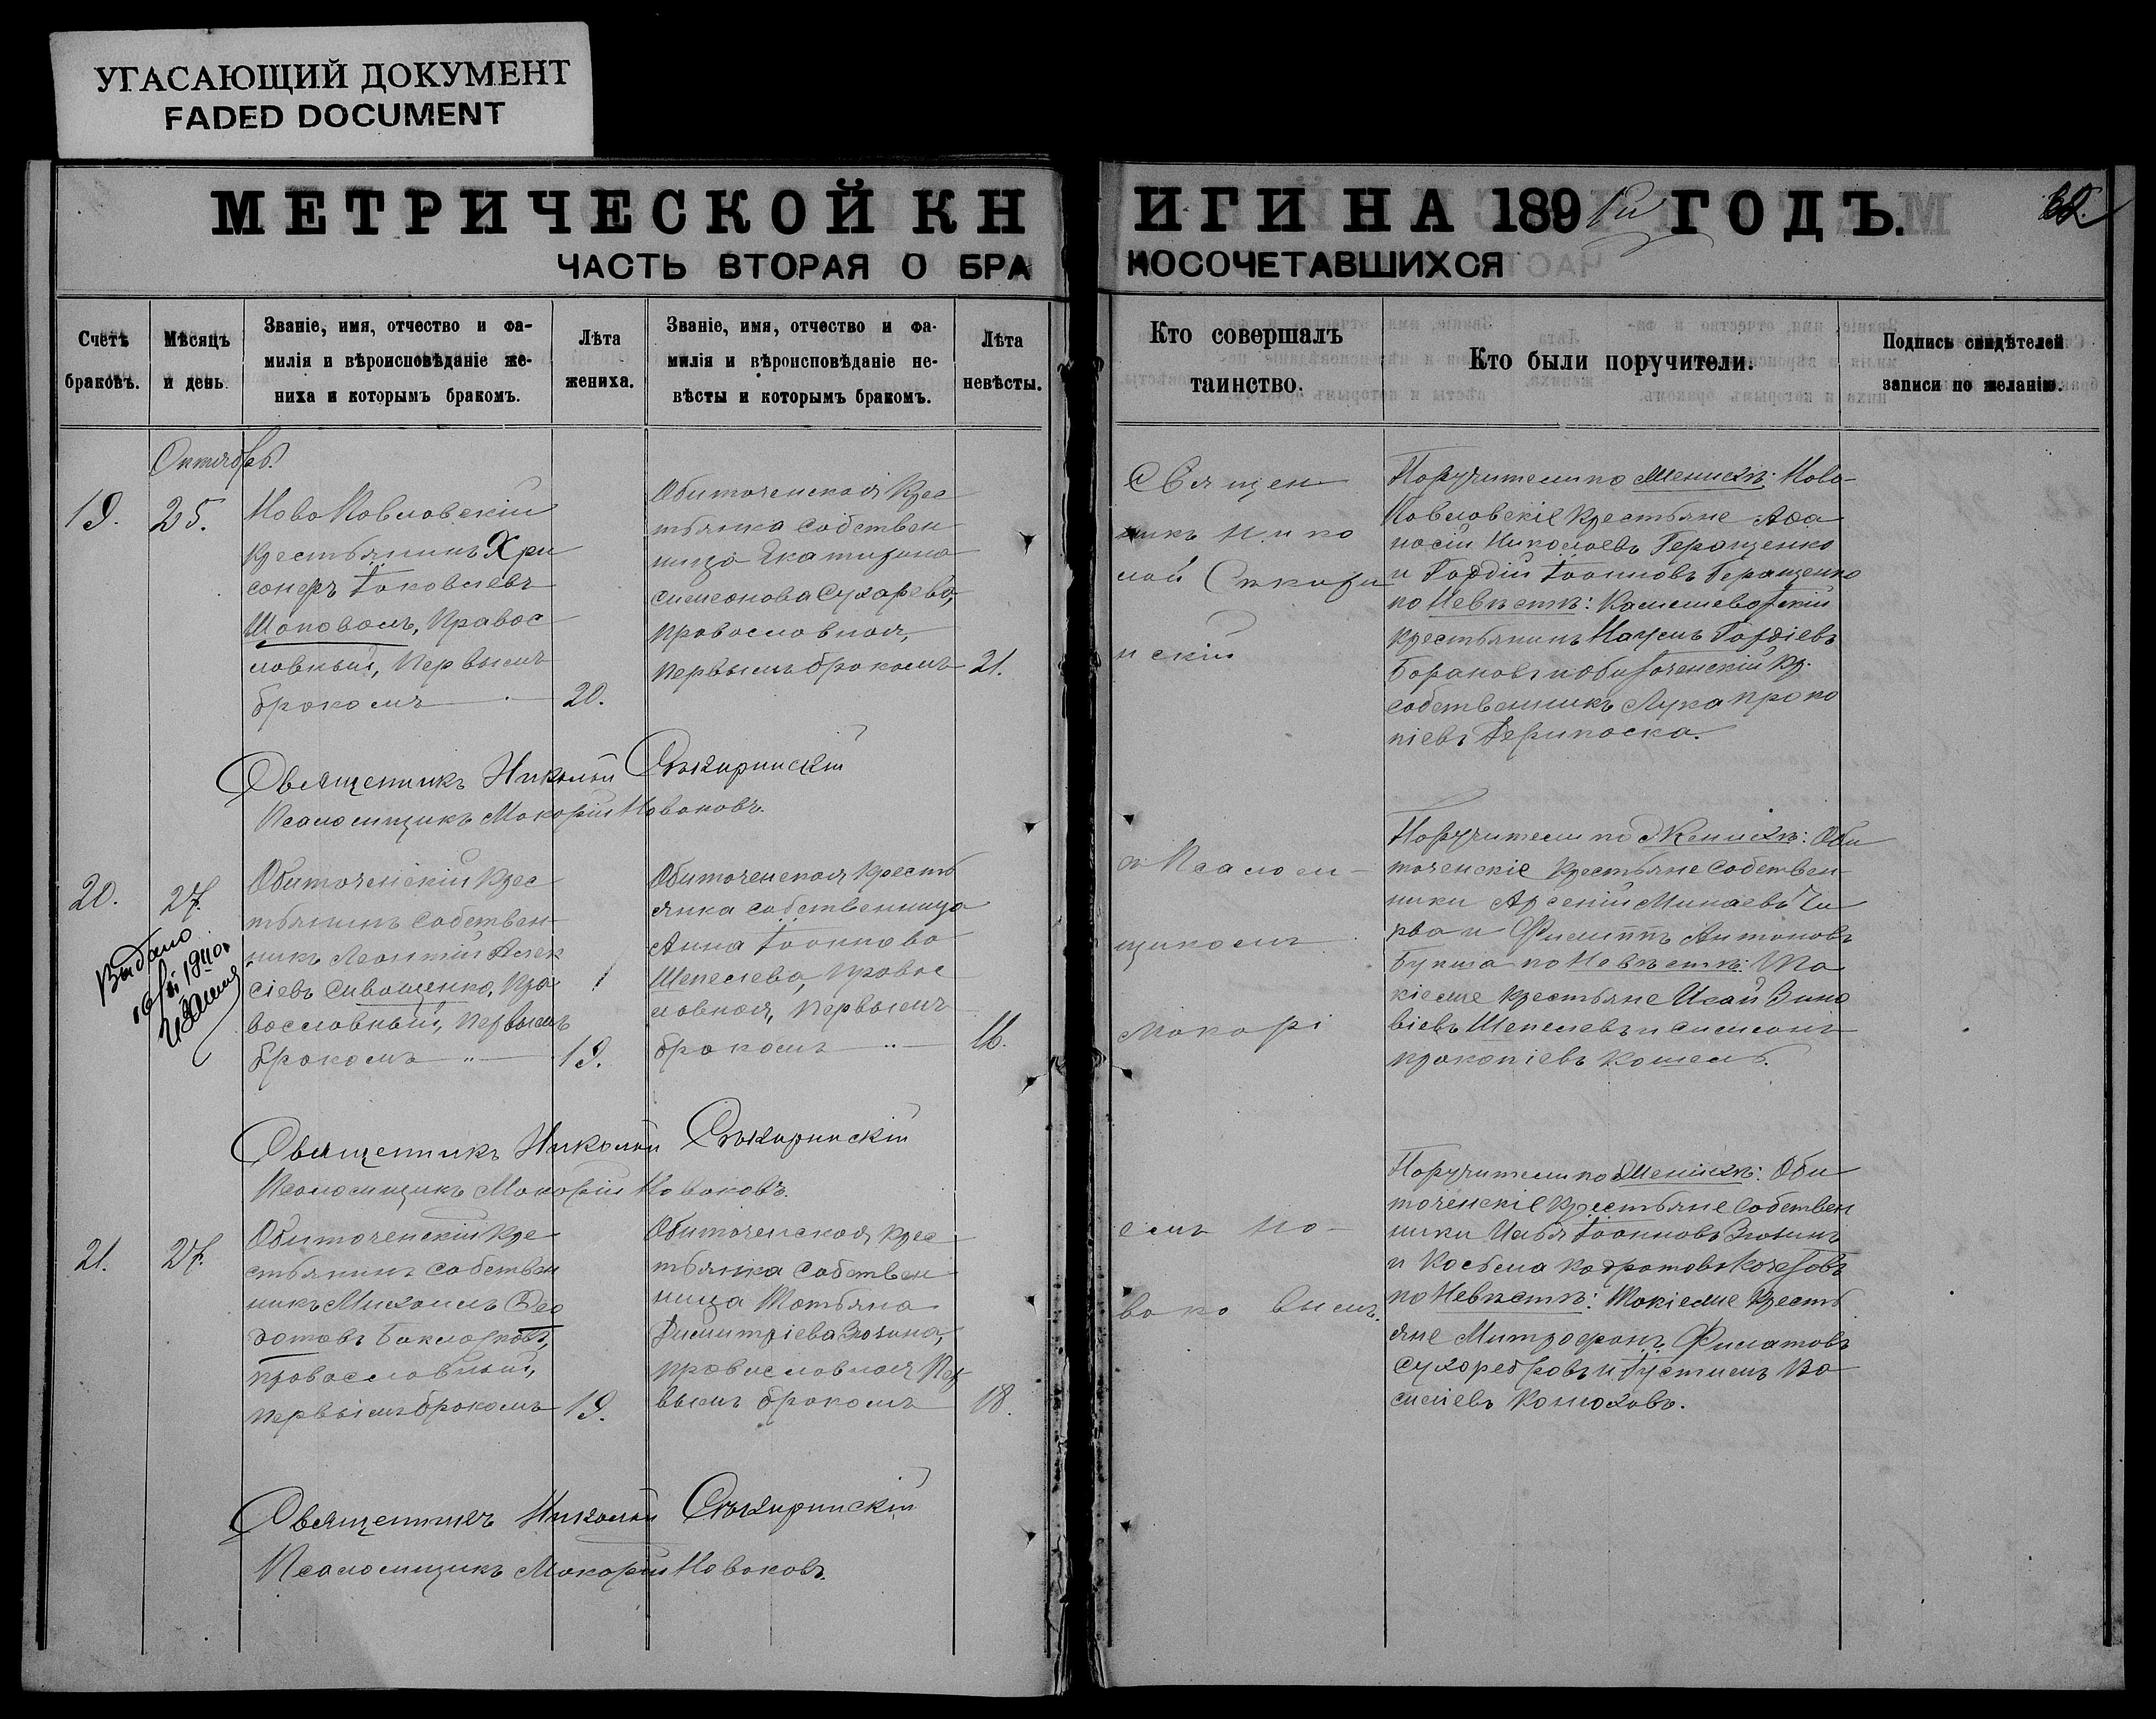 УГАСАЮЩИЙ ДОКУМЕНТ
FADED DOCUMENT
МЕТРИЧЕСКОЙ КН
ИГИ НА 189 ГОДЪ.
ЧАСТЬ ВТОРАЯ О БРА
КОСОЧЕТАВШИХСЯ
Счетъ
браковъ.
Мѣсяцъ
и день
Званіе, имя, отчество и фа-
милія и вѣроисповѣданіе же-
ниха и которымъ бракомъ.
Лѣта
жениха.
Званіе, имя, отчество и фа-
милія и вѣроисповѣданіе не-
вѣсты и которымъ бракомъ.
Лѣта
невѣсты.
Кто совершалъ
таинство.
Кто были поручители.
Подпись свидѣтелей
записи по желанію.
Октябрь.
19.
25.
Ново Павловскій
крестьянинъ Хри
санфъ Іаковлевъ
Шаповалъ, Правос
лавный, первымъ
бракомъ
20.
Обиточенская крес
тьянка собствен
ница Екатерина
Симеонова Сухарева,
православная,
первымъ бракомъ
21.
Священ
никъ Нико
лай Сѣкири
нскій
Поручители по Женихѣ: Ново-
Павловскіе крестьяне Афа
насій Николаевъ Геращенко
и Гордій Іоанновъ Геращенко
по Невѣстѣ:
крестьянинъ Наумъ Гордіевъ
Барановъ и Обиточенскій кр.
собственникъ Лука Проко
піевъ Дерипаска.
Священникъ Николай Сѣкиринскій
Псаломщикъ Макарій Новаковъ.
20.
27.
Выдано
Обиточенскій крес
тьянинъ собствен
никъ Леонтій Алек
сіевъ Сиващенко, Пра
вославный, первымъ
бракомъ
19.
Обиточенская кресть
янка собственница
Анна Іоаннова
Шепелева, правос
лавная, первымъ
бракомъ
16.
и Псалом-
щикомъ
Макарі
Поручители по Женихѣ: Оби
точенскіе крестьяне собствен-
ники Арсеній Минаевъ Чи
рва и Филиппъ Антоновъ
Букша по Невѣстѣ: Та
кіеже крестьяне Исай Зино
віевъ Шепелевъ и Симеонъ
Прокопіевъ Кошель.
Священникъ Николай Сѣкиринскій
Псаломщикъ Макарій Новаковъ.
21.
27.
Обиточенскій кре
стьянинъ собствен
никъ Михаилъ Фео
дотовъ Баклажковъ,
православный,
первымъ бракомъ
19.
Обиточенская крес
тьянка собствен
ница Татьяна
Димитріева Зюзина,
православная пер
вымъ бракомъ
18.
емъ Но-
вако вымъ.
Поручители по Женихѣ: Оби
точенскіе крестьяне собствен
ники Илья Іоанновъ Зюзинъ
и Косьма
по Невѣстѣ: Такіеже кресть
яне Митрофанъ Филатовъ
Сухоребровъ и Іустинъ Ва
силіевъ Конюховъ.
Священникъ Николай Сѣкиринскій
Псаломщикъ Макарій Новаковъ.